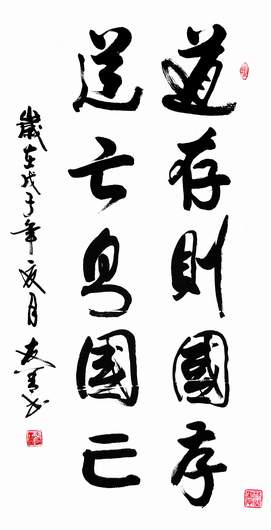 道存則國存
道亡則國亡
歲在戊子年月友書